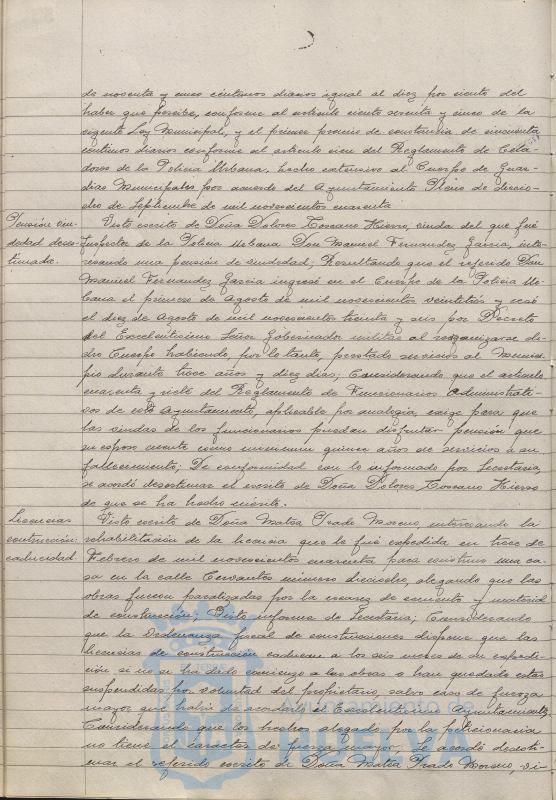 de noventa y cinco céntimos diarios igual al diez por ciento del
haber que percibe, conforme al artículo ciento sesenta y cinco de la
vigente Ley Municipal, y el primer premio de constancia de cincuenta
céntimos diarios conforme al artículo cien del Reglamento de Cela-
dores de la Policía Urbana, hecho extensivo al Cuerpo de Guar-
dias Municipales por acuerdo del Ayuntamiento Pleno de diecio-
cho de Septiembre de mil novecientos cuarenta
Pensión viu-
dedad deses-
timada.
Visto escrito de Doña Dolores Toscano Hierro, viuda del que fué
Inspector de la Policía Urbana Don Manuel Fernandez Garcia, inte-
resando una pensión de viudedad; Resultando que el referido Don
Manuel Fernandez Garcia ingresó en el Cuerpo de la Policía Ur-
bana el primero de Agosto de mil novecientos veintitrés y cesó
el diez de Agosto de mil novecientos treinta y seis por Decreto
del Excelentísimo Señor Gobernador militar al reorganizarse di-
cho Cuerpo habiendo, por lo tanto, prestado servicios al Munici-
pio durante trece años y diez dias; Considerando que el artículo
cuarenta y siete del Reglamento de Funcionarios administrati-
vos de este Ayuntamiento, aplicable por analogía, exige para que
las viudas de los funcionarios puedan disfrutar pensión que
su esposo cuente como minimum quince años de servicios a su
fallecimiento; De conformidad con lo informado por Secretaría,
se acordó desestimar el escrito de Doña Dolores Toscano Hierro
de que se ha hecho mérito.
Licencias
construcción:
caducidad.
Visto escrito de Doña Matea Prado Moreno, interesando la
rehabilitación de la licencia que le fué expedida en trece de
Febrero de mil novecientos cuarenta para construir una ca-
sa en la calle Cervantes número dieciseis, alegando que las
obras fueron paralizadas por la escasez de cemento y material
de construcción; Visto informe de Secretaría; Considerando
que la Ordenanza fiscal de construcciones dispone que las
licencias de construcción caducan a los seis meses de su expedi-
ción si no se ha dado comienzo a las obras o han quedado estas
suspendidas por voluntad del propietario, salvo caso de fuerza
mayor que habrá de acordarlo el Excelentísimo Ayuntamiento;
Considerando que los hechos alegados por la peticionaria
no tiene el caracter de fuerza mayor, Se acordó desesti-
mar el referido escrito de Doña Matea Prado Moreno, si-
Ayuntamiento de
HUELVA